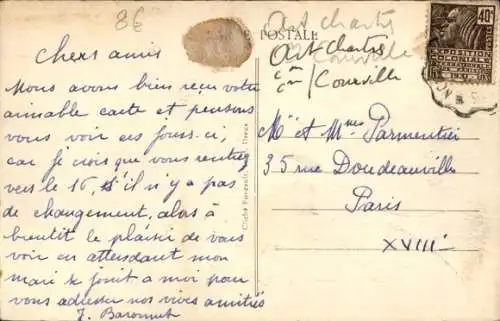 86
E POSTALE
Art chartres
Courville
Art Chartres
cm/ Courville
40c
Chers amis
Nous avons bien reçu votre
aimable carte et pensons
vous voir ces jours-ci,
car je crois que vous rentrez
vers le 16, s'il n'y a pas
de changement, alors à
bientôt le plaisir de vous
voir en attendant mon
mari se joint a moi pour
vous adresser nos vives amitiés
Cliché Foucault, Dreux
Mr et Mme Parmentier
35 rue Doudeauville
Paris
XVIII